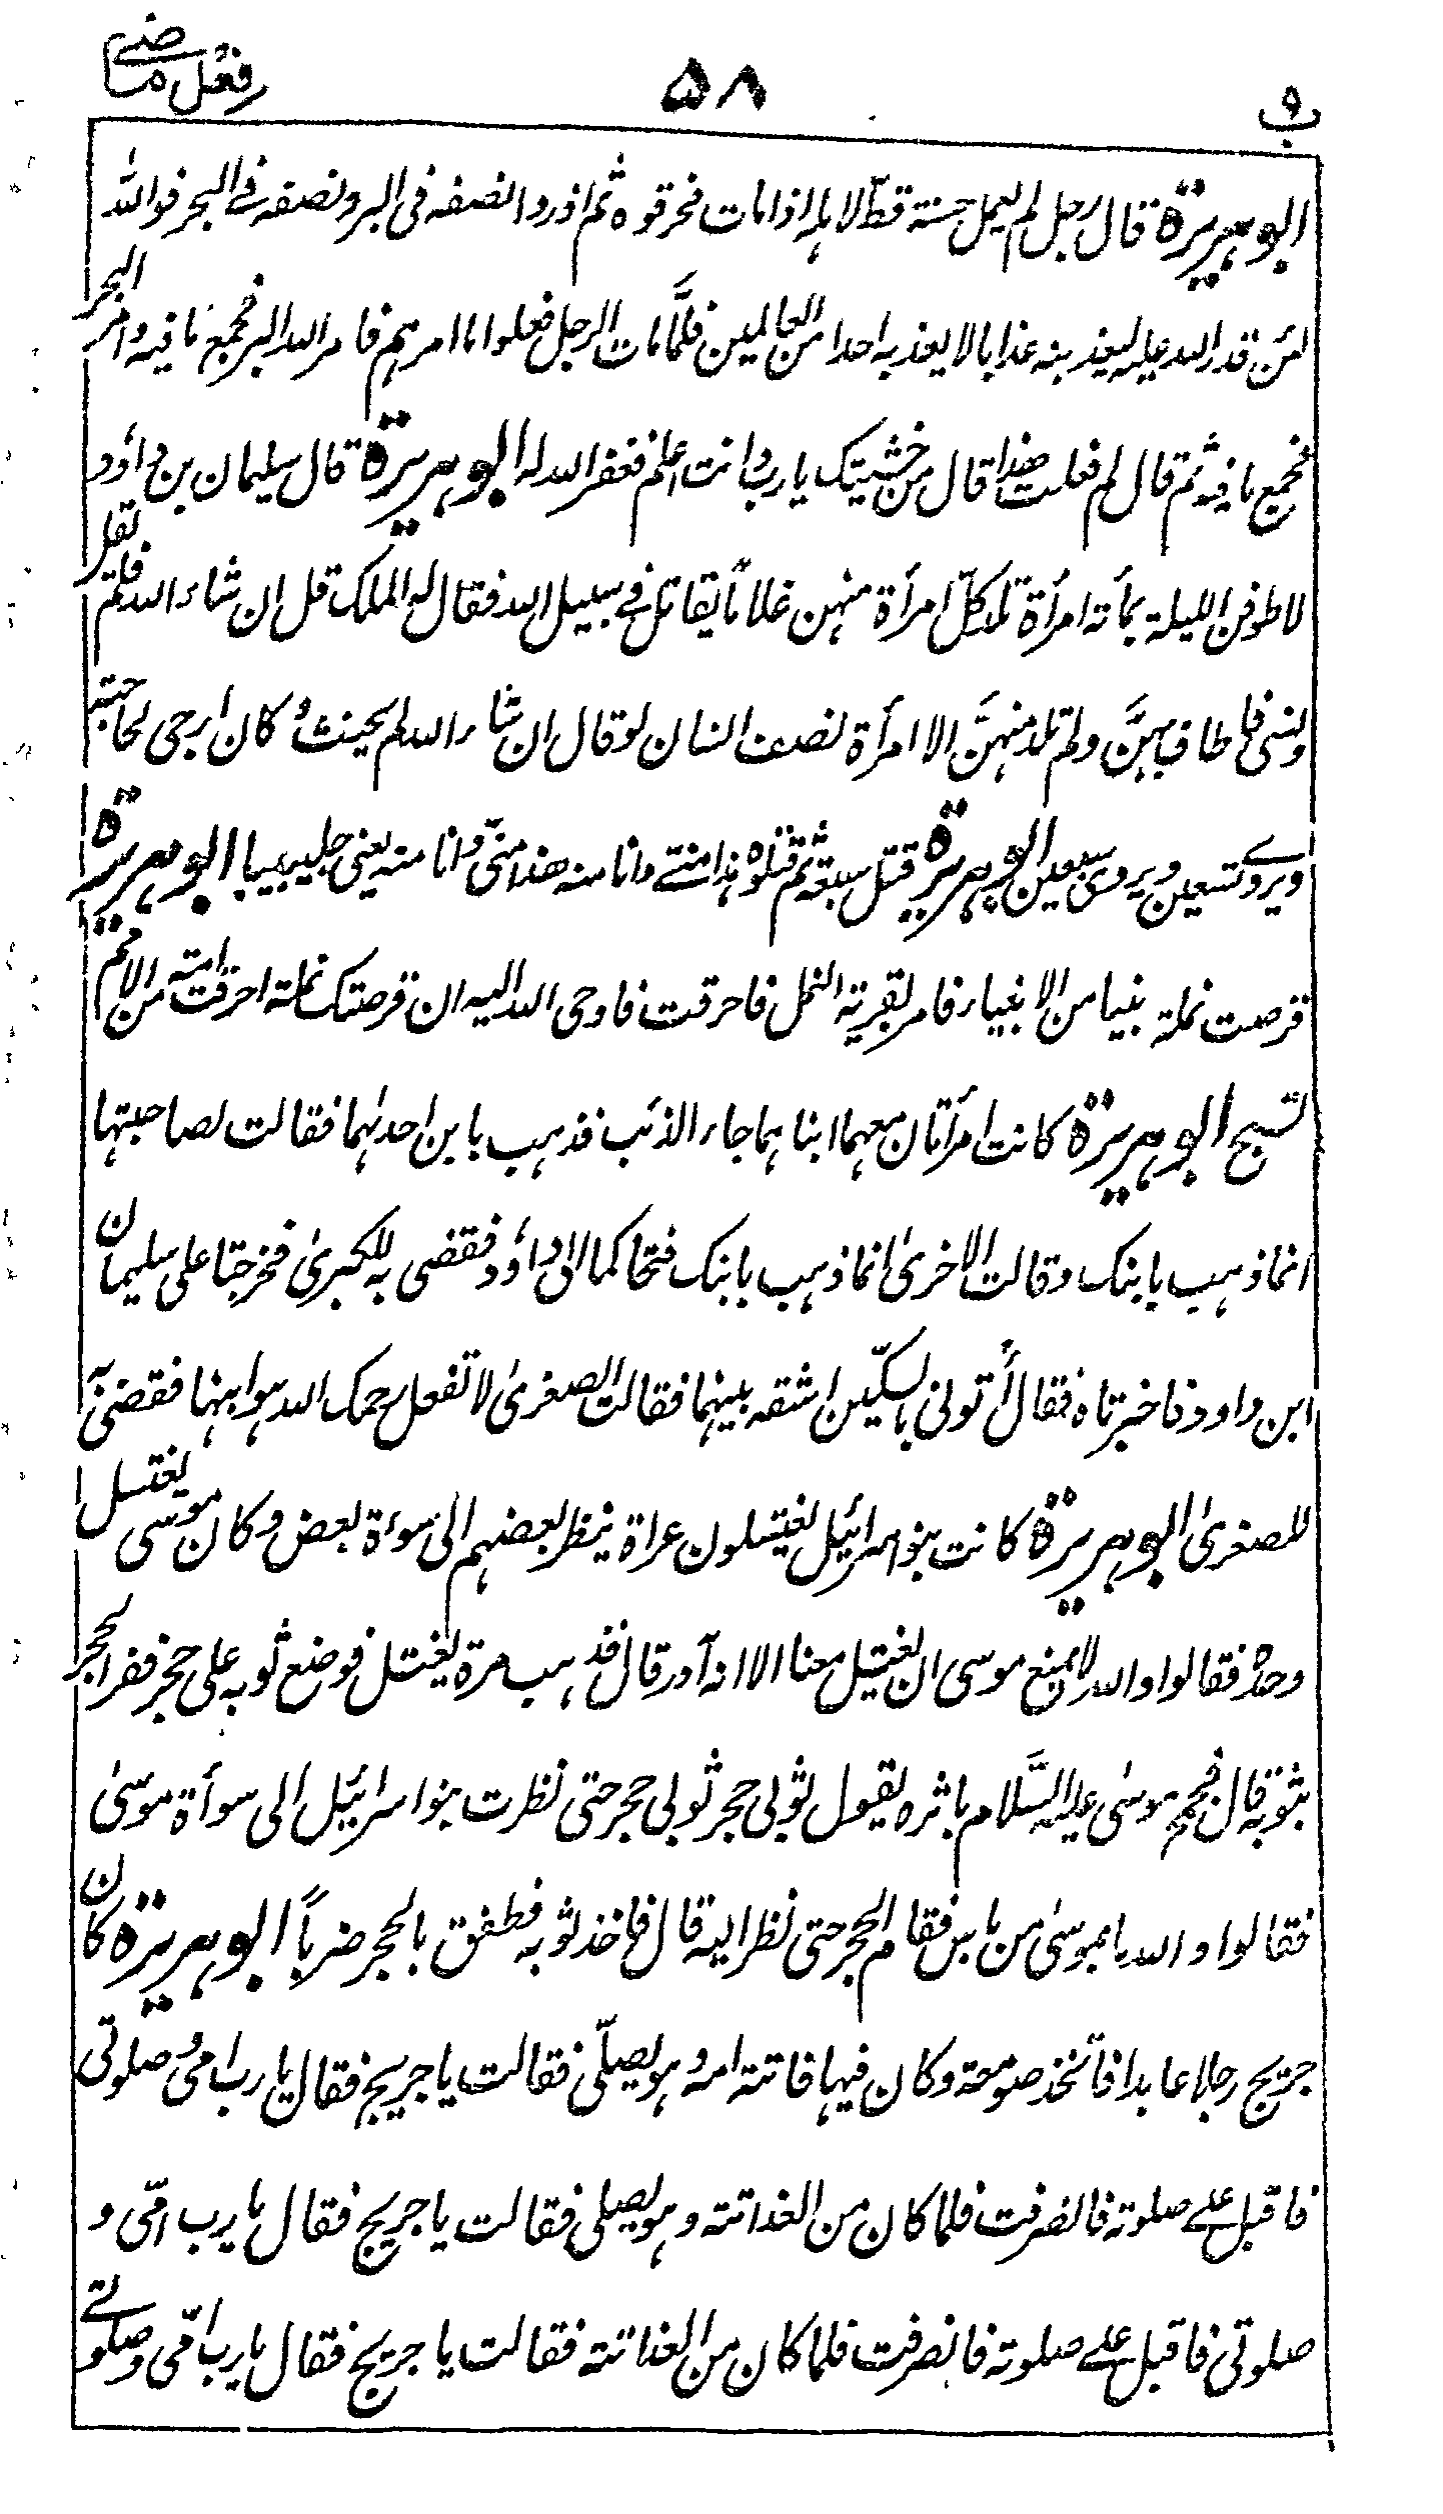 ب ٩
٥٨
فعل ماضي
ابو هريرة قال رجل لم يعمل حسنة قطّ لاهله اذا مات فحرقوه ثم اذروا نصفه فى البر و نصفه في البحر فوالله
لئن قدر الله عليه ليعذبنه عذابا لا يعذبه احدا من العالمين فلمَّا مات الرجل فعلوا ما امرهم فامر الله البر فجمع ما فيه و امر البحر
فجمع ما فيه ثم قال لم فعلت هذا قال من خشيتك يا رب و انت اعلم فغفر الله له ابو هريرة قال سليمان بن داؤد
لاطوفن الليلة بمأته امرأة تلد كلّ امرأة منهن غلامًا يقاتل في سبيل الله فقال له الملك قل ان شاء الله فلم يقل
ونسى فاطاف بهنَّ ولم تلد منهنَّ الا امرأة نصف انسان لو قال ان شاء الله لم يحنث و كان ارجى لحاجته
ويروے تسعين ويروى سبعين ابو هريرة قتل سبعة ثم قتلوه هذا منے وانا منه هذا منّى وانا منه يعنى جليبيبا ابو هريرة
قرصت نملة نبيا من الانبياء فامر بقرية النمل فاحرقت فاوحى الله اليه ان قرصتك نملة احرقت امته من الامم
تسبح ابو هريرة كانت امرأتان معهما ابناهما جاء الذئب فذهب بابن احدٰهما فقالت لصاحبتها
انما ذهب بابنك وقالت الاخرىٰ انما ذهب بابنك فتحاكما الى داؤد فقضى به للكبرىٰ فخرجتا على سليمان
ابن داود فاخبرتاه فقال أتونى بالسكّين اشقه بينهما فقالت الصغرىٰ لا تفعل رحمك الله هو ابنها فقضى به
للصغرىٰ ابو هريرة كانت بنو اسرائيل يغتسلون عراة ينظر بعضهم الى سوءة بعض و كان موسى يغتسل
وحده فقالوا والله لا يمنع موسى ان يغتسل معنا الا انه آدر قال فذهب مرة يغتسل فوضع ثوبه على حجر ففر الحجر
بثوبه قال فجمح موسىٰ عليه السَّلام باثره يقول ثوبى حجر ثوبى حجر حتى نظرت بنو اسرائيل الى سوأة موسىٰ
فقالوا و الله ما بموسىٰ من باس فقام الحجر حتى نظر اليه قال فاخذ ثوبه فطفق بالحجر ضرباً ابو هريرة كان
جريج رجلا عابدا فاتخذ صومعة وكان فيها فاتته امه و هو يصلّى فقالت يا جريج فقال يا رب امى و صلوتى
فاقبل علے صلوته فانصرفت فلما كان من الغد اتته و هو يصلى فقالت يا جريج فقال يا رب امّى و
صلوتى فاقبل علے صلوته فانصرفت فلما كان من الغد اتته فقالت يا جريج فقال يا رب امّى و صلوتے